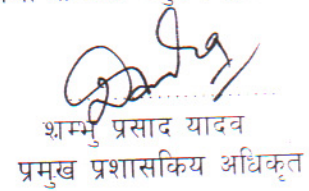 शम्भु प्रसाद यादव
प्रमुख प्रशासकिय अधिकृत